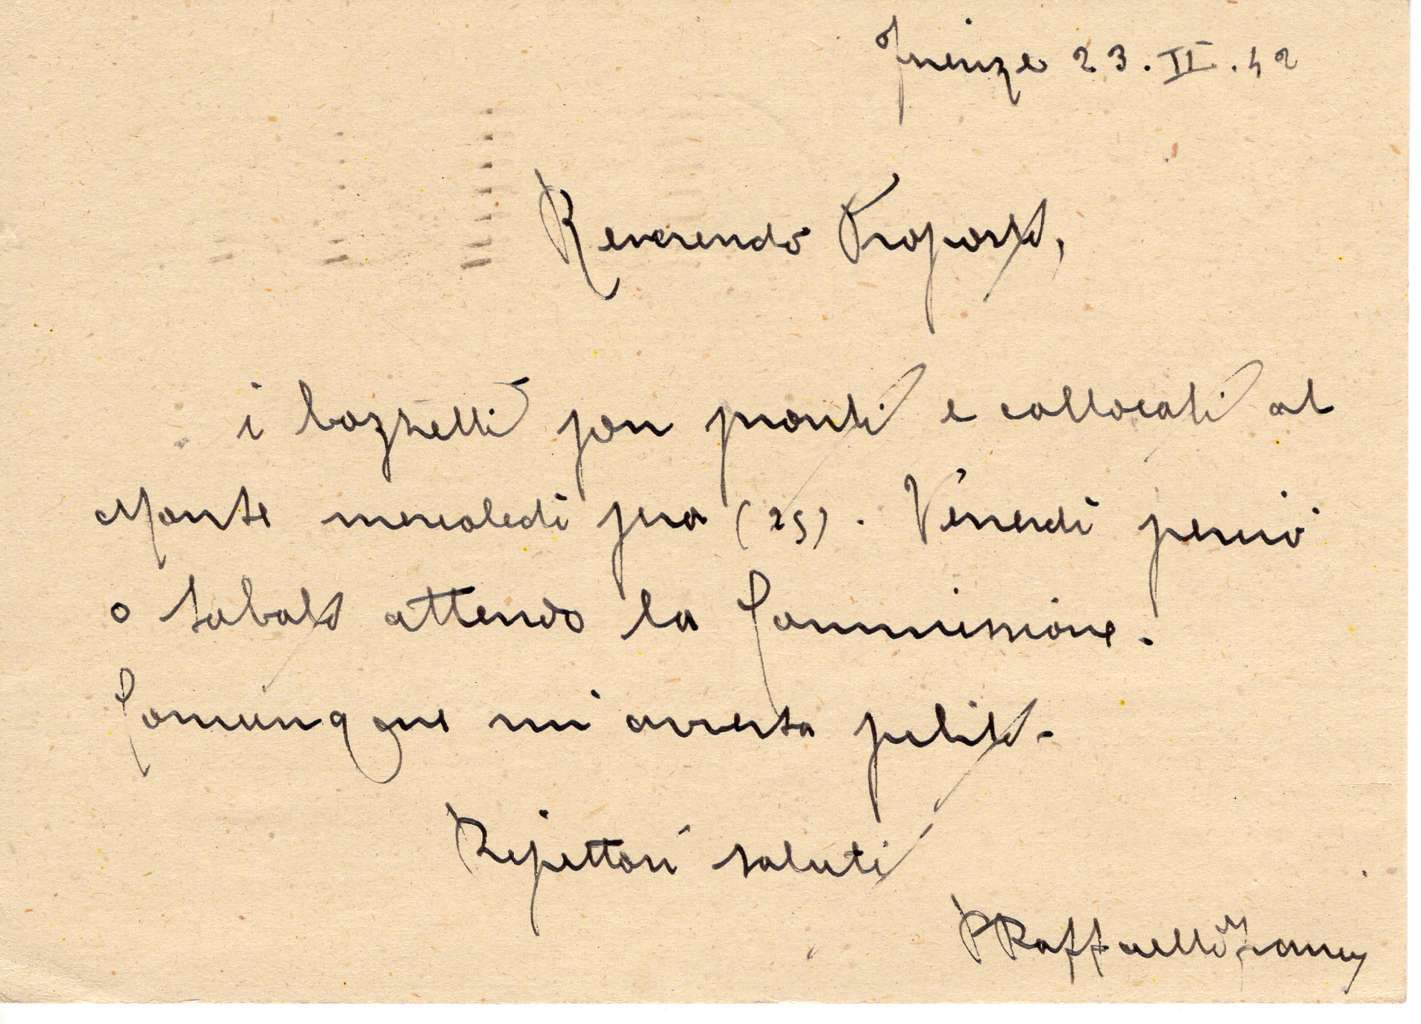 Firenze 23.II.42
Reverendo Proposto,
i bozzetti son pronti e collocati al
Monte mercoledì sera (25). Venerdì perciò
o sabato attendo la Commissione.
Comunque mi avverta subito.
Rispettosi saluti
P Raffaello